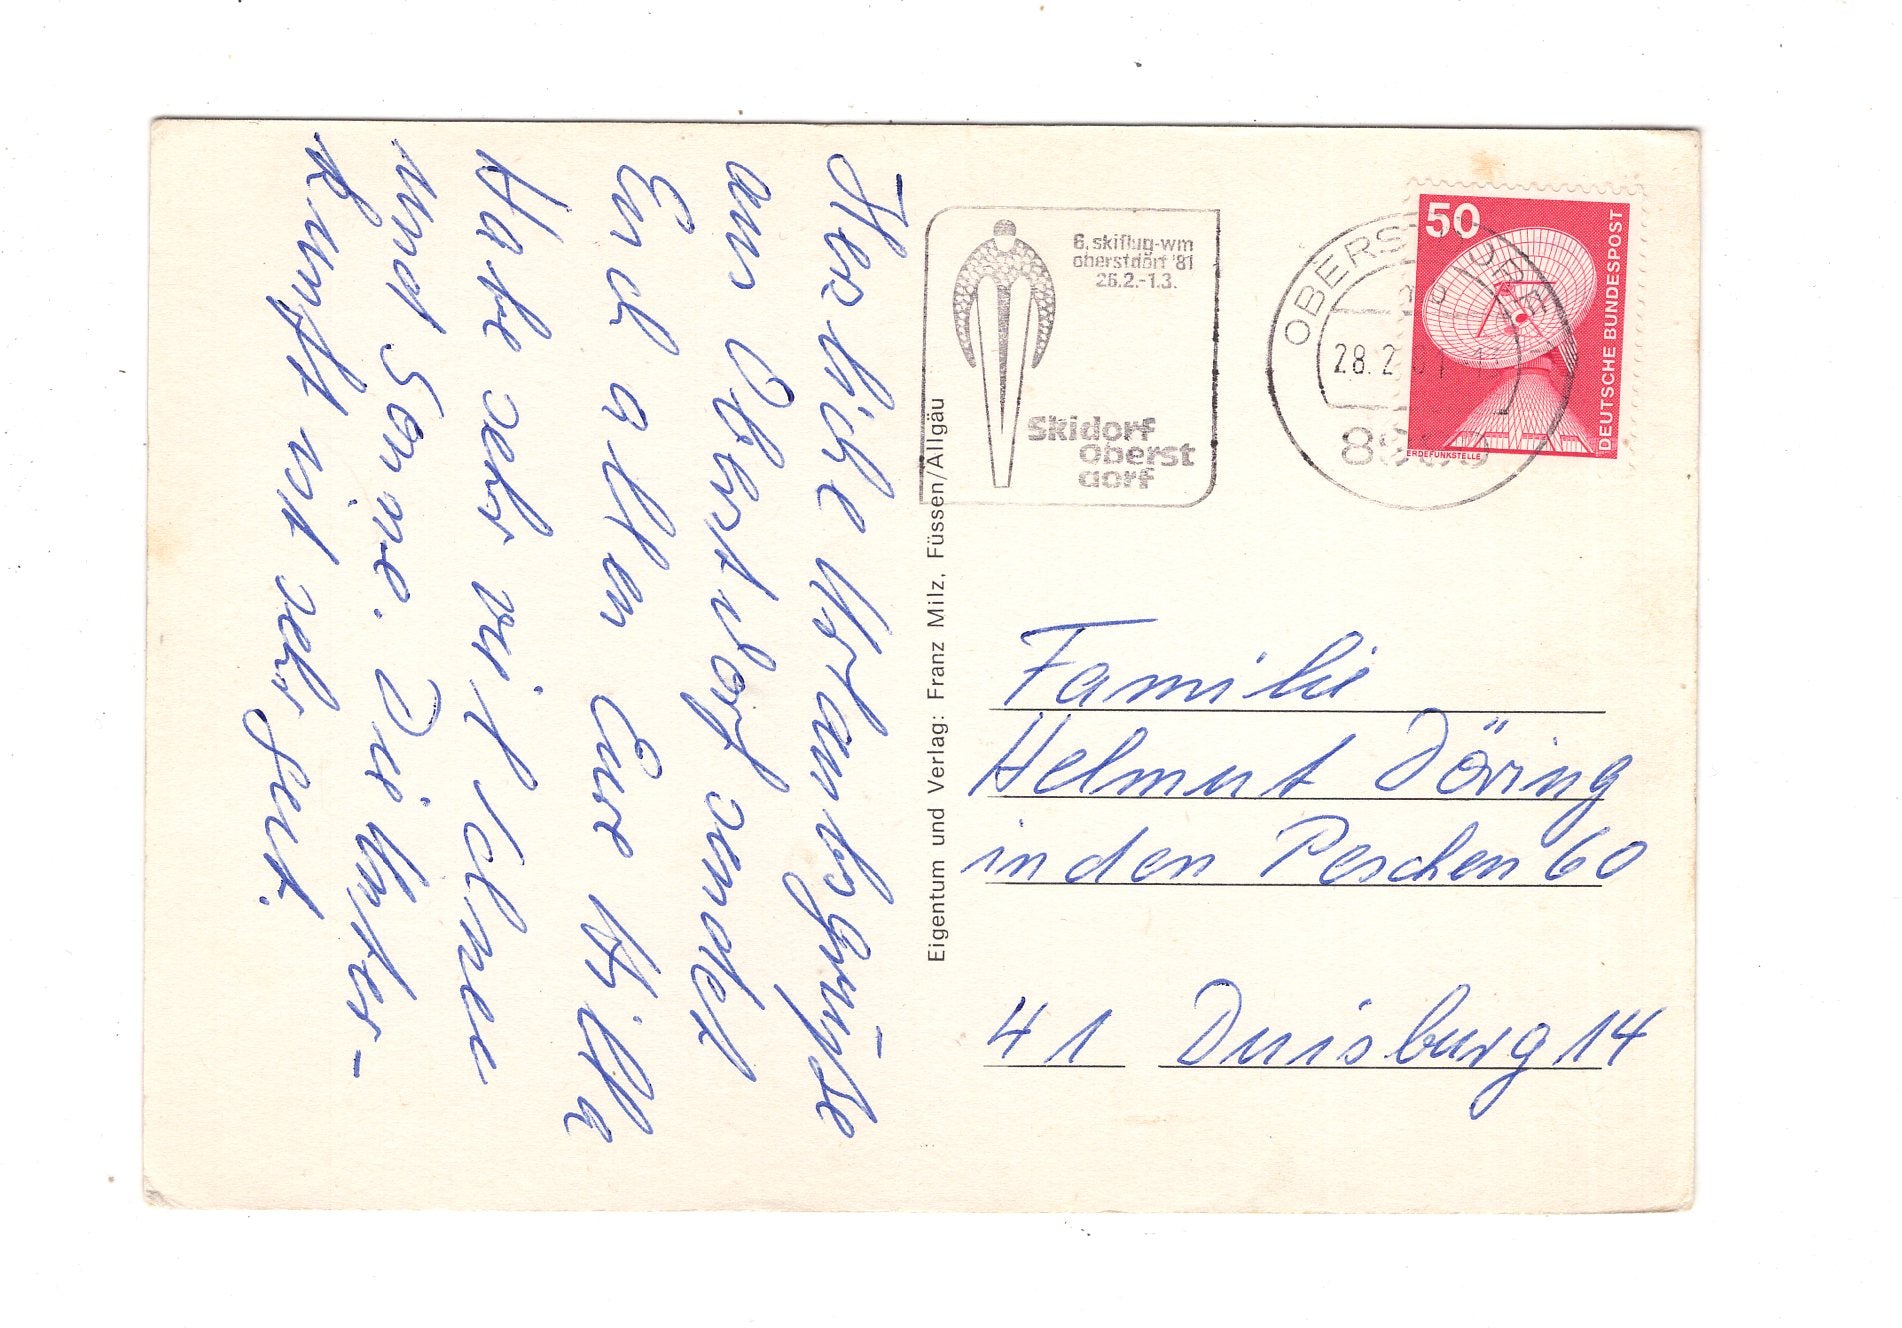 Herzliche Urlaubsgrüße
aus Oberstdorf sendet
Euch allen Eure Killa
Habe sehr viel Schnee
und Sonne. Die Unter-
kunft ist sehr gut.
6. skiflug-wm
oberstdorf '81
26.2.-1.3.
Skidorf
Oberst
dorf
28.2
50
DEUTSCHE BUNDESPOST
ERDEFUNKSTELLE
Eigentum und Verlag: Franz Milz, Füssen/Allgäu
Familie
Helmut Döring
in den Peschen 60
41 Duisburg 14